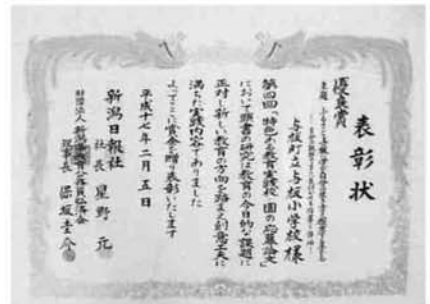 表彰状
優良賞
与板町立与板小学校様
第四回「特色ある教育実践校・園の応募論文」
において頭書の研究は教育の今日的な課題に
正対し新しい教育の方向を踏まえ創意工夫に
満ちた実践内容でありました
よってここに賞金を贈り表彰いたします
平成十七年二月五日
新潟日報社
社長 星野 元
財団法人 新潟県教育公務員弘済会
理事長 保坂